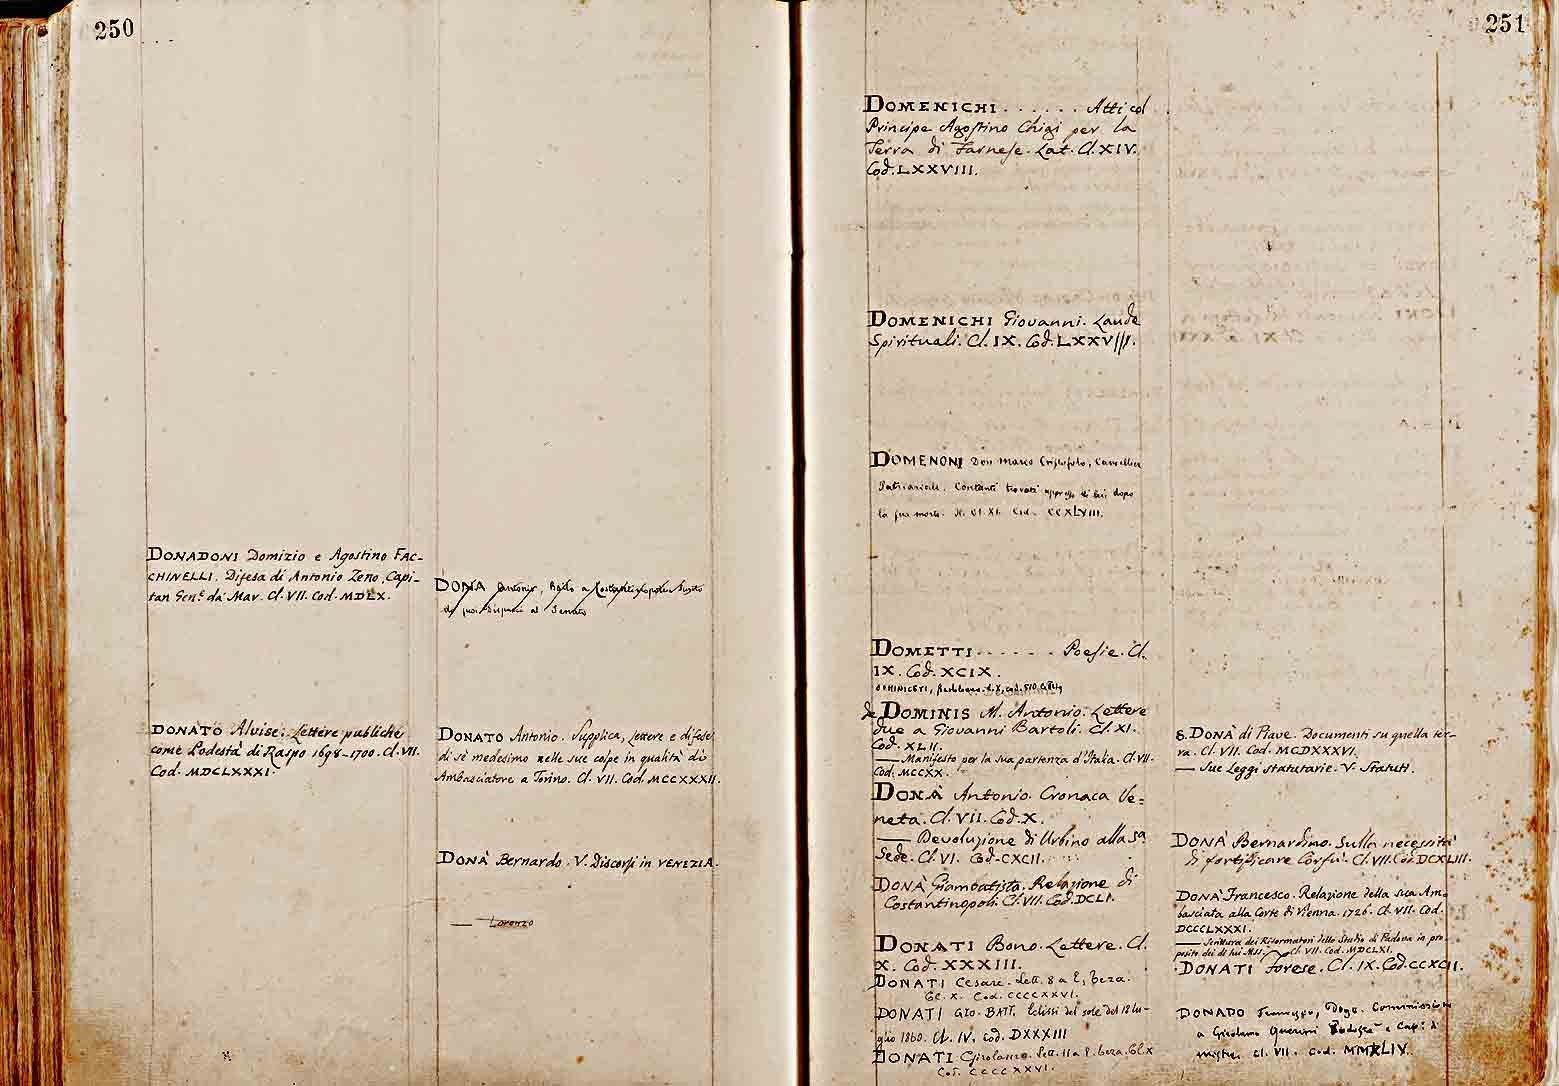 250
DONADONI Domizio e Agostino FAC-
CHINELLI. Difesa di Antonio Zeno, Capi-
tan Gen.e da Mar. Cl. VII. Cod. MDLX.
DONATO Alvise. Lettere publiche
come Podestà di Raspo 1698-1700. Cl. VII.
Cod. MDCLXXXI.
DONA Antonio, Bailo a Costantinopoli
di suoi dispacci al Senato
DONATO Antonio. Supplica, lettere e difese
di sè medesimo nelle sue colpe in qualità di
Ambasciatore a Torino. Cl. VII. Cod. MCCXXXII.
DONÀ Bernardo. V. Discorsi in VENEZIA.
— Lorenzo
251
DOMENICHI . . . . . . Atti col
Principe Agostino Chigi per la
Terra di Farnese. Lat. Cl. XIV.
Cod. LXXVIII.
DOMENICHI Giovanni. Laude
Spirituali. Cl. IX. Cod. LXXVIII.
DOMENONI Don Marco Cristoforo, Cancellier
Patriarcale. Contanti trovati appresso di lui dopo
la sua morte. Cl. XI. Cod. CCXLVIII.
DOMETTI . . . . . . Poesie. Cl.
IX. Cod. XCIX.
de DOMINIS M. Antonio. Lettere
due a Giovanni Bartoli. Cl. XI.
Cod. XLII.
— Manifesto per la sua partenza d'Italia. Cl. VII.
Cod. MCCXX.
DONÀ Antonio. Cronaca Ve=
neta. Cl. VII. Cod. X.
— Devoluzione di Urbino alla Sa
Sede. Cl. VI. Cod. CXCII.
DONÀ Giambatista. Relazione di
Costantinopoli. Cl. VII. Cod. DCLI.
DONATI Bono. Lettere. Cl.
X. Cod. XXXIII.
DONATI Cesare. Lett. 8 a E. Beza.
Cl. X. Cod. CCCCXXVI.
DONATI GIO. BATT. Eclissi del sole del 18 lu-
glio 1860. Cl. IV. Cod. DXXXIII
DONATI Girolamo. Lett. 11 a E. Beza. Cl. X
Cod. CCCCXXVI.
S. DONÀ di Piave. Documenti su quella ter-
ra. Cl. VII. Cod. MCDXXXVI.
— Sue Leggi statutarie. V. Statuti.
DONÀ Bernardino. Sulla necessità
di fortificare Corfù. Cl. VII. Cod. DCXLIII.
DONÀ Francesco. Relazione della sua Am-
basciata alla Corte di Vienna. 1726. Cl. VII. Cod.
DCCCLXXXI.
— Scrittura dei Riformatori dello Studio di Padova in pro-
posito dei di lui Mss. Cl. VII. Cod. MDCLXI.
DONATI Forese. Cl. IX. Cod. CCXCII.
DONADO Francesco, Doge. Commissione
a Girolamo Querini Podestà e Cap.
Cl. VII. Cod. MMXLIV.